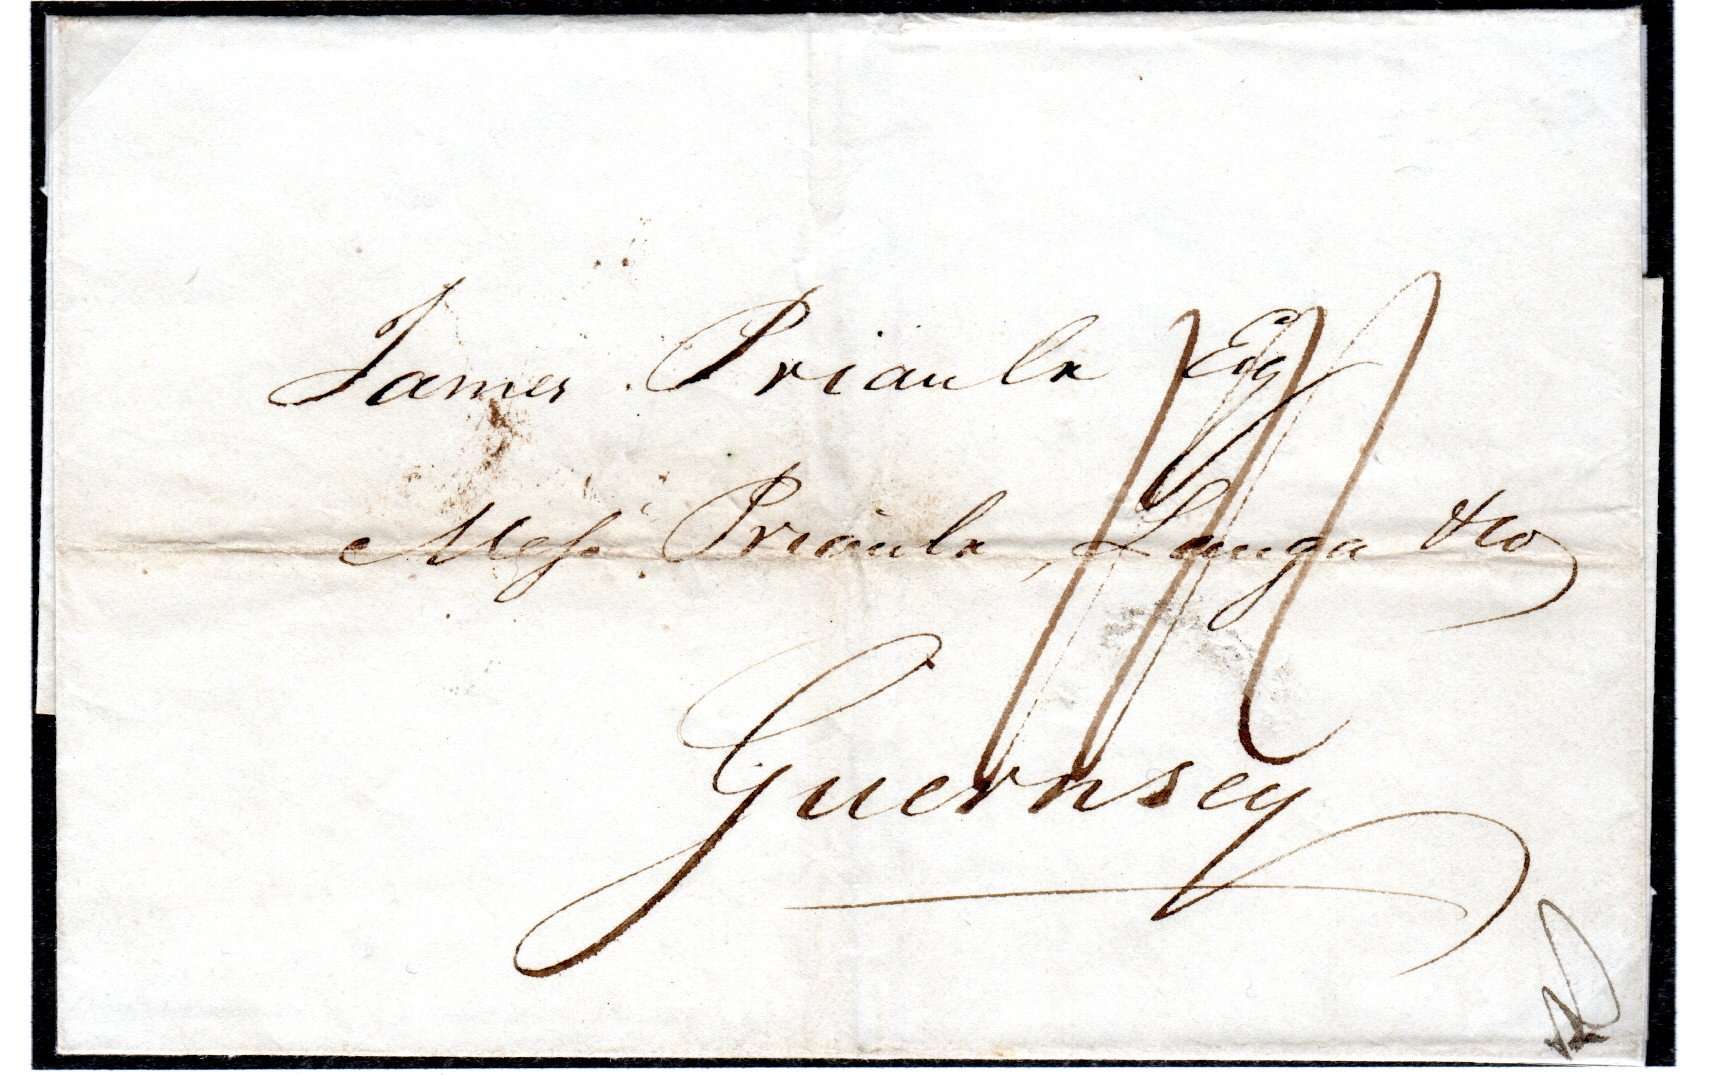 James Priaulx Esq
Mess Priaulx, Langa & Co
Guernsey